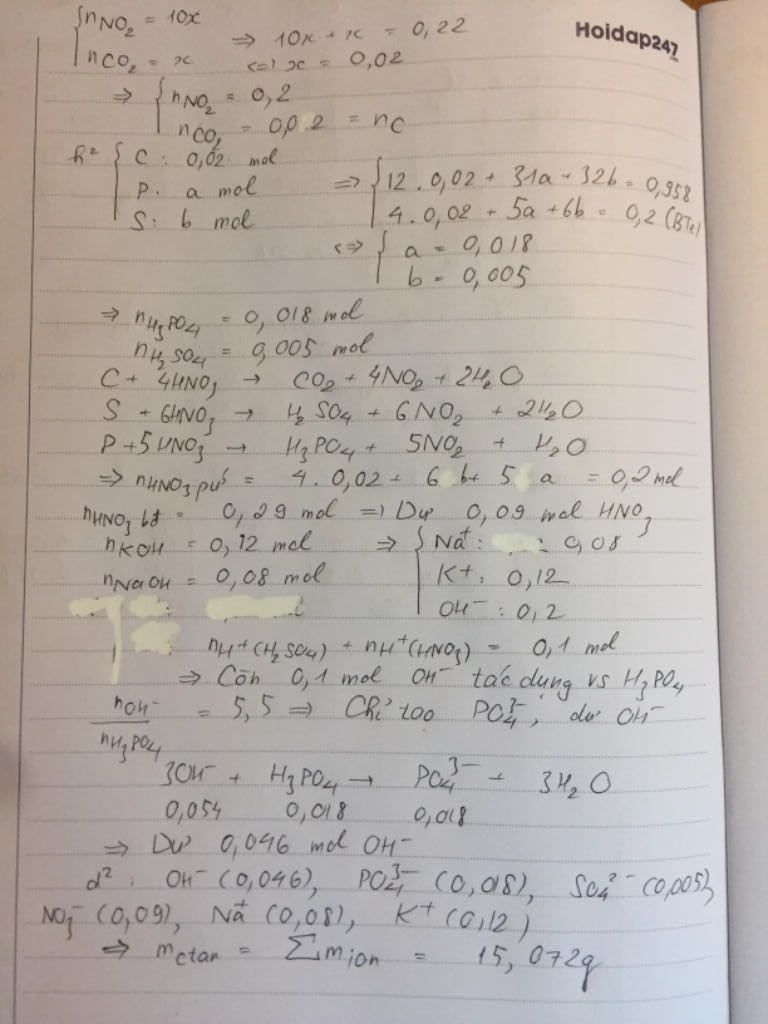 Hoidap247
{nNO2 = 10x ⇒ 10x + x = 0,22
nCO2 = x <=> x = 0,02
⇒ { nNO2 = 0,2
nCO2 = 0,02 = nC
h² { C : 0,02 mol ⇒ { 12 . 0,02 + 31a + 32b = 0,958
P : a mol 4 . 0,02 + 5a + 6b = 0,2 (BTe)
S : b mol <=> { a = 0,018
b = 0,005
⇒ nH3PO4 = 0,018 mol
nH2SO4 = 0,005 mol
C + 4HNO3 → CO2 + 4NO2 + 2H2O
S + 6HNO3 → H2SO4 + 6NO2 + 2H2O
P + 5HNO3 → H3PO4 + 5NO2 + H2O
⇒ nHNO3 pứ = 4 . 0,02 + 6 b + 5 a = 0,2 mol
nHNO3 bđ = 0,29 mol => Dư 0,09 mol HNO3
nKOH = 0,12 mol ⇒ { Na+ : 0,08
nNaOH = 0,08 mol K+ : 0,12
OH- : 0,2
nH+(H2SO4) + nH+(HNO3) = 0,1 mol
⇒ Còn 0,1 mol OH- tác dụng vs H3PO4
nOH- / nH3PO4 = 5,5 ⇒ Chỉ tạo PO4 3-, dư OH-
3OH- + H3PO4 → PO4 3- + 3H2O
0,054 0,018 0,018
⇒ Dư 0,046 mol OH-
d² : OH- (0,046), PO4 3- (0,018), SO4 2- (0,005),
NO3- (0,09), Na+ (0,08), K+ (0,12)
⇒ mctan = Σmion = 15,072g